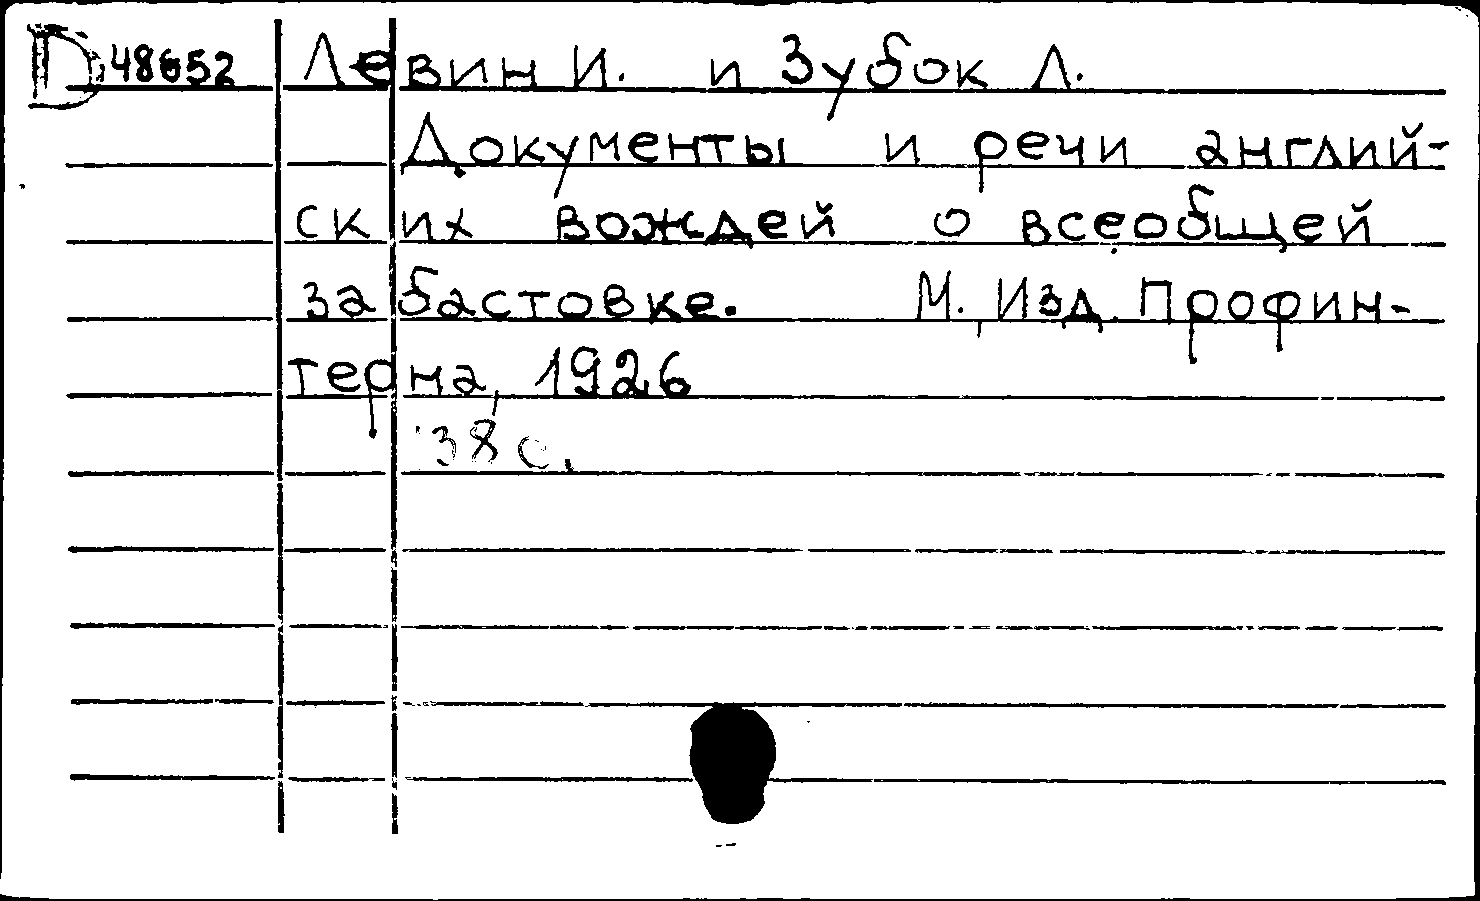 D 48652 Левин И. и Зубок Л.
Документы и речи англий-
ских вождей о всеобщей
забастовке. М., Изд. Профин-
терна, 1926
38 с.